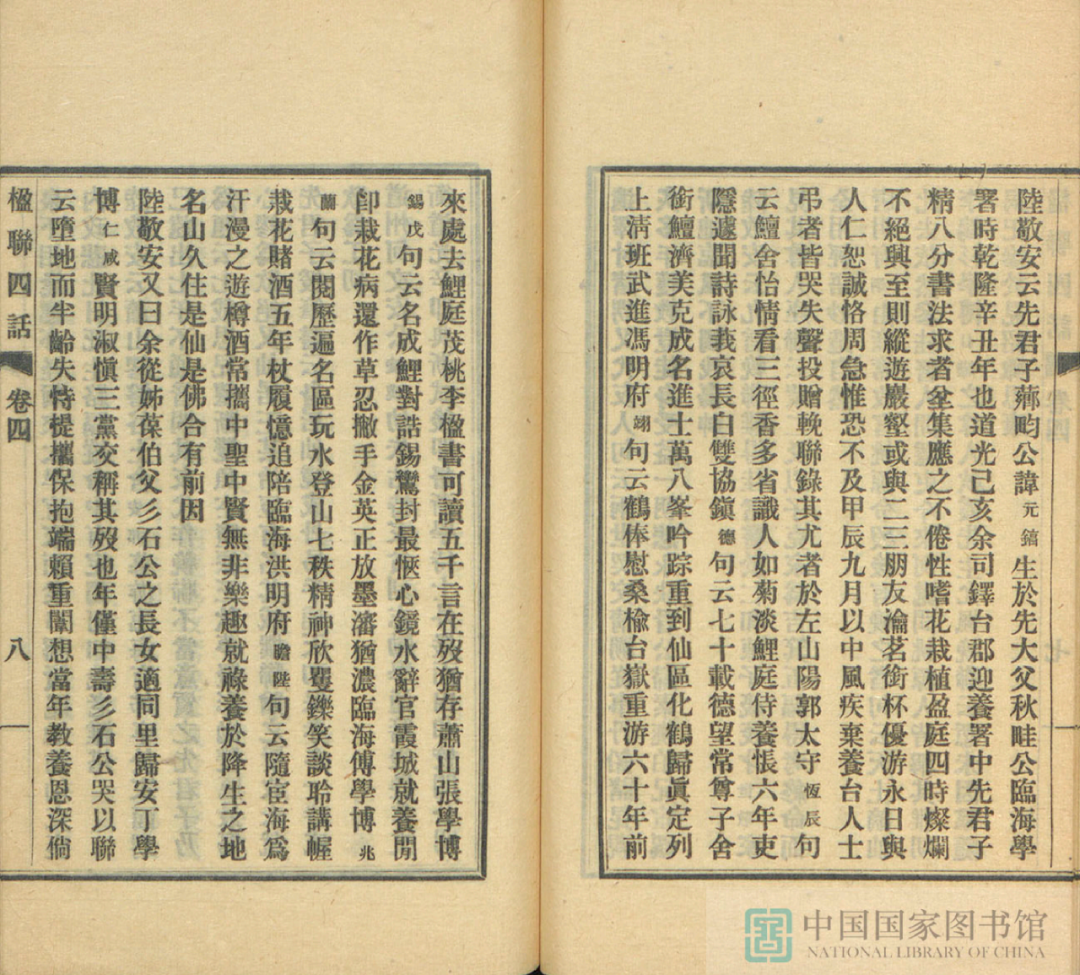 陸敬安云先君子薌畇公諱元鎬生於先大父秋畦公臨海學
署時乾隆辛丑年也道光己亥余司鐸台郡迎養署中先君子
精八分書法求者坌集應之不倦性嗜花栽植盈庭四時燦爛
不絕興至則縱遊巖壑或與二三朋友瀹茗銜杯優游永日與
人仁恕誠恪周急惟恐不及甲辰九月以中風疾棄養台人士
弔者皆哭失聲投贈輓聯錄其尤者於左山陽郭太守恆辰句
云鱣舍怡情看三徑香多省識人如菊淡鯉庭侍養悵六年吏
隱遽聞詩詠莪哀長白雙協鎮德句云七十載德望常尊子舍
銜鱣濟美克成名進士萬八峯吟踪重到仙區化鶴歸眞定列
上淸班武進馮明府翊句云鶴俸慰桑榆台嶽重游六十年前
來處去鯉庭茂桃李楹書可讀五千言在歿猶存蕭山張學博
錫戊句云名成鯉對誥錫鸞封最愜心鏡水辭官霞城就養閒
卽栽花病還作草忍撇手金英正放墨瀋猶濃臨海傅學博兆
蘭句云閱歷遍名區玩水登山七秩精神欣矍鑠笑談聆講幄
栽花賭酒五年杖履憶追陪臨海洪明府瞻陛句云隨宦海爲
汗漫之遊樽酒常攜中聖中賢無非樂趣就祿養於降生之地
名山久住是仙是佛合有前因
陸敬安又曰余從姊葆伯父彡石公之長女適同里歸安丁學
博仁咸賢明淑愼三黨交稱其歿也年僅中壽彡石公哭以聯
云墮地而半齡失恃提攜保抱端賴重闈想當年教養恩深倘
楹聯四話
卷四
八
中国国家图书馆
NATIONAL LIBRARY OF CHINA